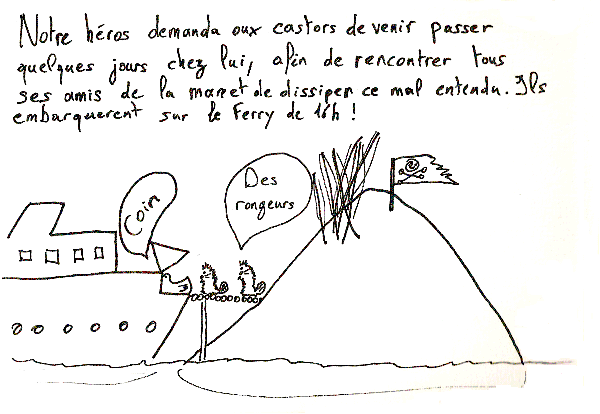 Notre héros demanda aux castors de venir passer
quelques jours chez lui, afin de rencontrer tous
ses amis de la mare et de dissiper ce mal entendu. Ils
embarquerent sur le Ferry de 16h !
Coin
Des
rongeurs